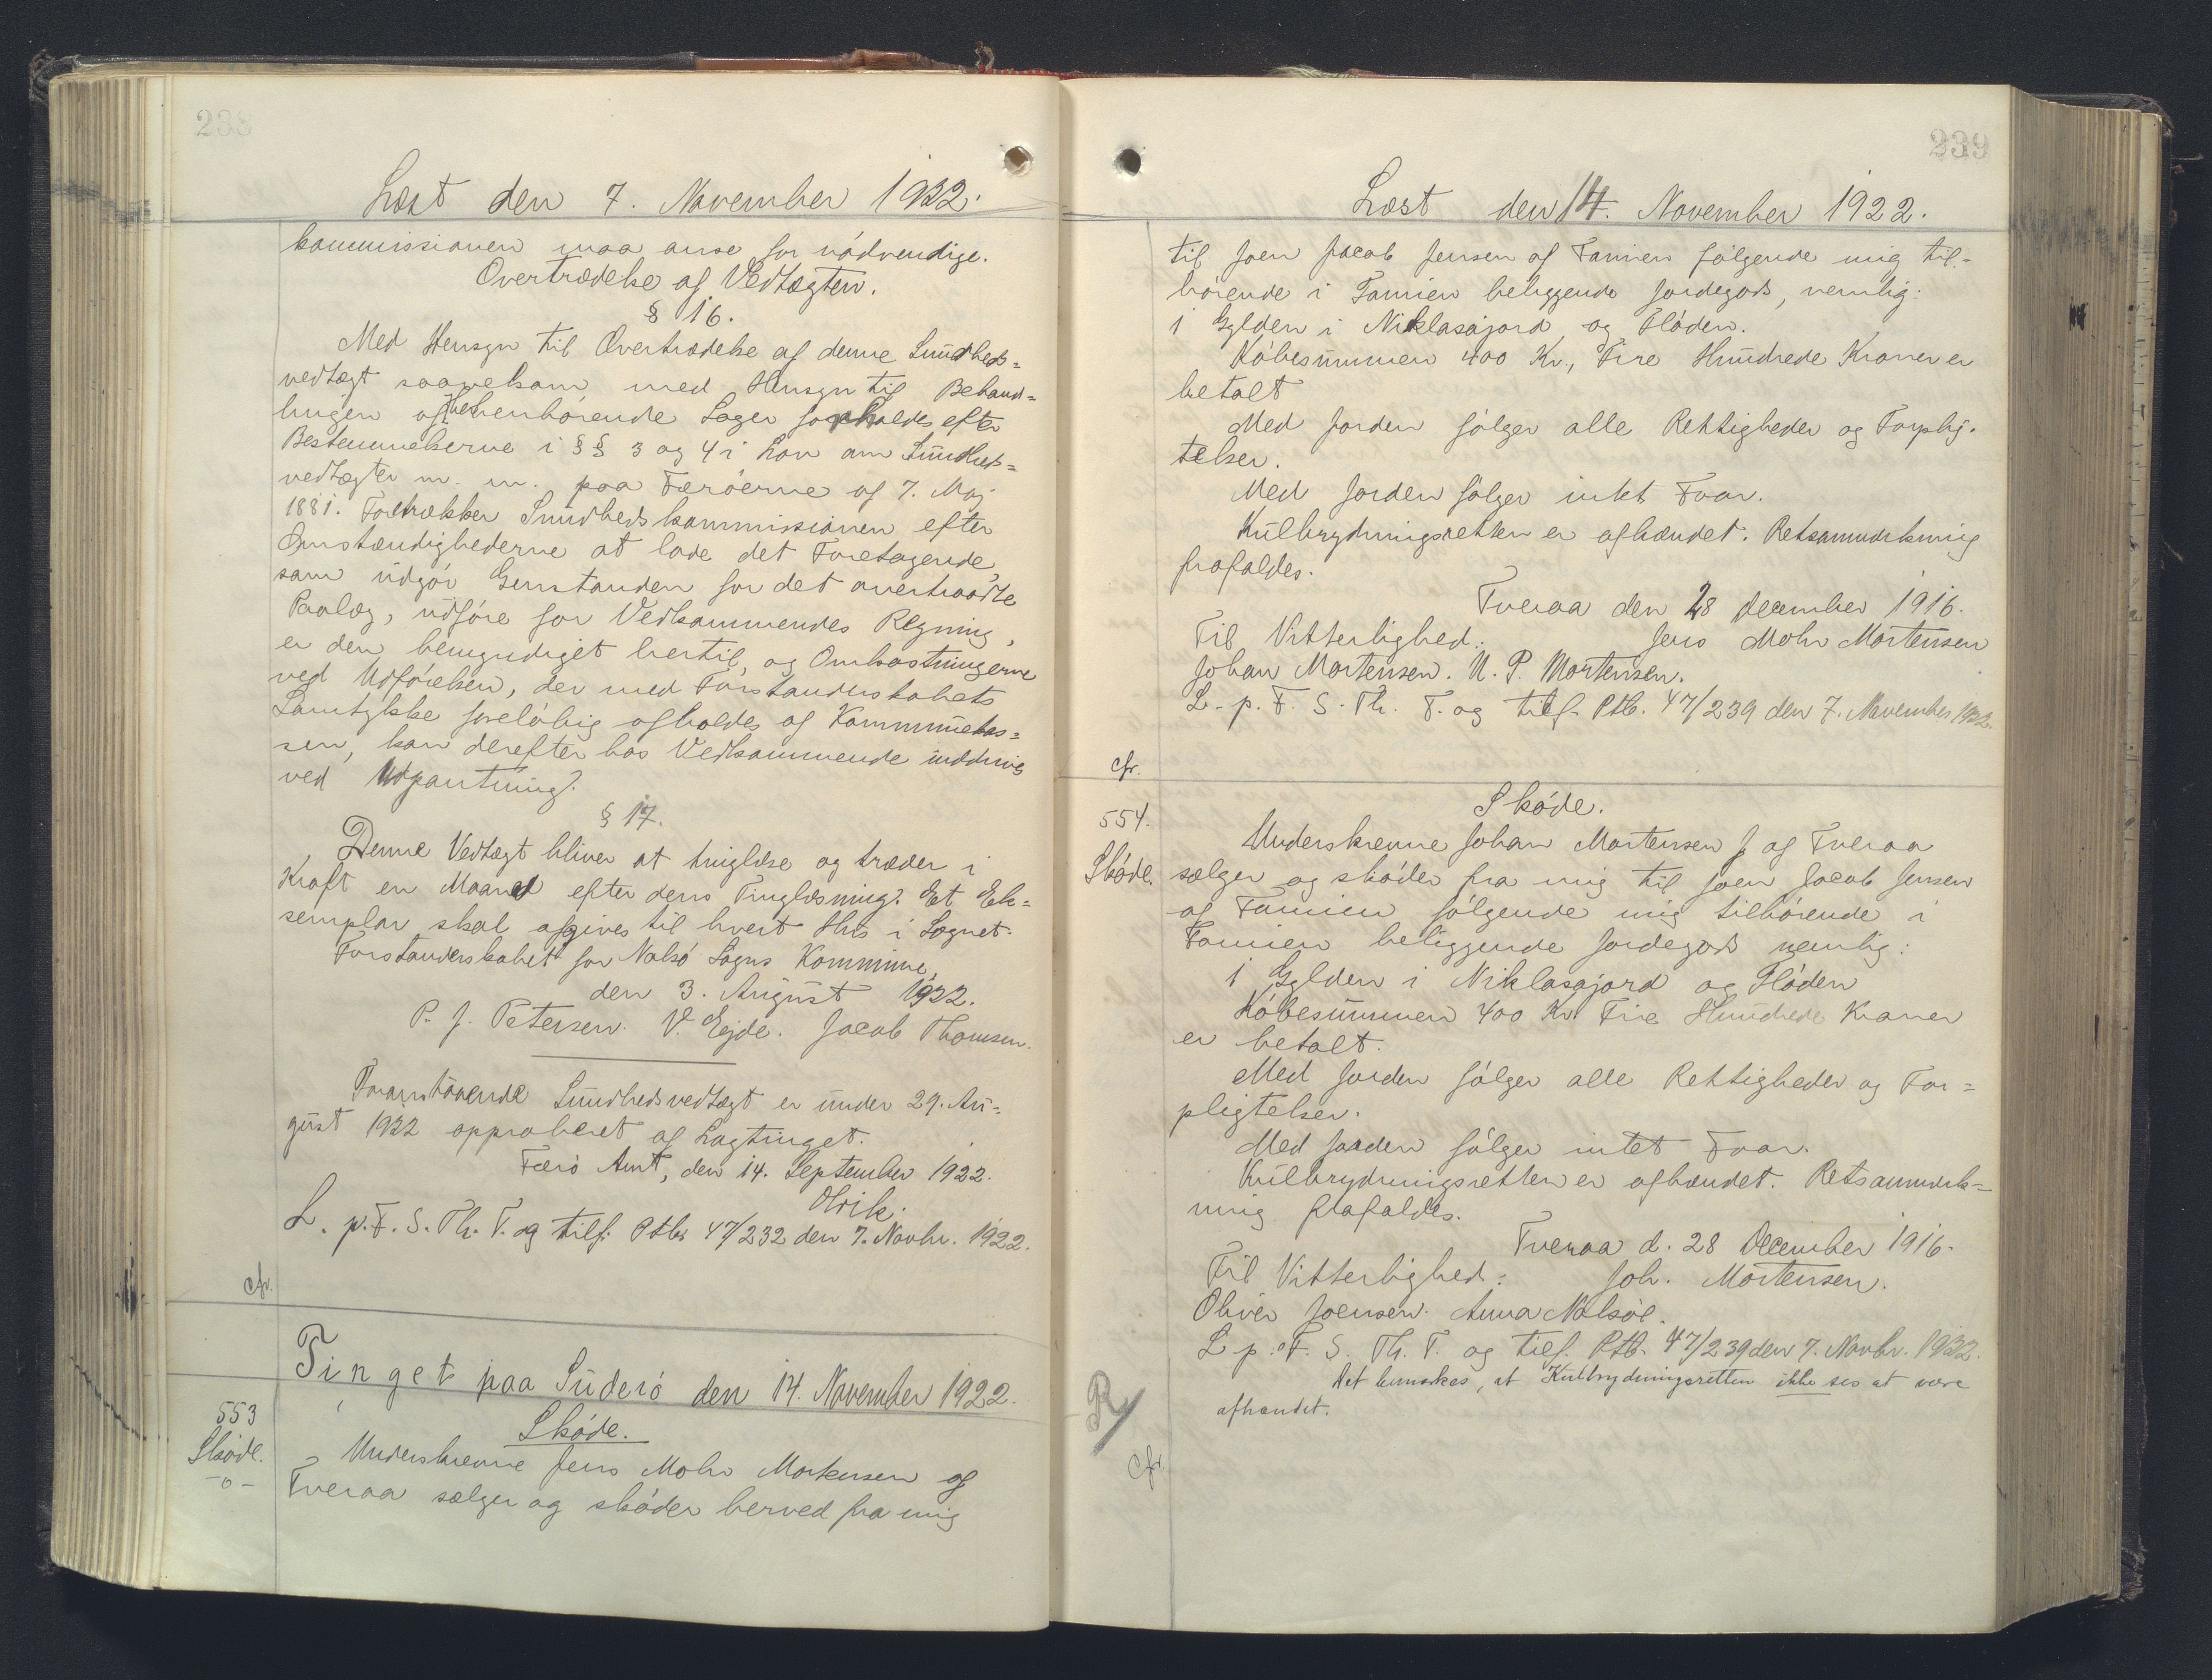 238
Læst den 7. November 1922.
kommissionen maa anse for nödvendige.
Overtrædelse af Vedtægten.
§ 16.
Med Hensyn til Overtrædelse af denne Sundheds=
vedtægt saavelsom med Hensyn til Behand=
lingen af herhenhörende Sager forholdes efter
Bestemmelserne i §§ 3 og 4 i Lov om Sundheds=
vedtægter m. m. paa Færöerne af 7. Maj
1881. Foretrækker Sundhedskommissionen efter
Omstændighederne at lade det Foretagende,
som udgör Genstanden for det overtraadte
Paalæg, udföre for Vedkommendes Regning,
er den bemyndiget hertil, og Omkostningerne
ved Udförelsen, der med Forstanderskabets
Samtykke foreløbig afholdes af Kommunekas=
sen, kan derefter hos Vedkommende inddrives
ved Udpantning.
§ 17.
Denne Vedtægt bliver at tinglæse og træder i
Kraft en Maaned efter dens Tinglæsning. Et Ek=
semplar skal afgives til hvert Hus i Sognet.
Forstanderskabet for Nolsö Sogns Kommune,
den 3. August 1922.
P. J. Petersen. V. Ejde. Jacob Thomsen.
Foranstaaende Sundhedsvedtægt er under 29. Au=
gust 1922 approberet af Lagtinget.
Færö Amt, den 14. September 1922.
Olrik.
L. p. F. S. Th. T. og tilf. Ptb. 47/232 den 7. Novbr. 1922.
cfr.
Tinget paa Suderö den 14. November 1922.
553
Sköde.
Skøde.
-o-
Underskrevne Jens Mohr Mortensen af
Tveraa sælger og sköder herved fra mig
239
Læst den 14. November 1922.
til Joen Jacob Jensen af Famien følgende mig til=
hörende i Famien beliggende Jordegods, nemlig:
1 Gylden i Niklasajord og Flöden.
Köbesummen 400 Kr., Fire Hundrede Kroner er
betalt
Med Jorden fölger alle Rettigheder og Forplig-
telser.
Med Jorden fölger intet Faar.
Kulbrydningsretten er afhændet. Retsanmærkning
frafaldes.
Tveraa den 28 December 1916.
Til Vitterlighed: Jens Mohr Mortensen
Johan Mortensen. N. P. Mortensen.
L. p. F. S. Th. T. og tilf. Ptb. 47/239 den 7. November 1922.
cfr.
554.
Sköde.
Sköde.
Underskrevne Johan Mortensen J af Tveraa
sælger og sköder fra mig til Joen Jacob Jensen
af Famien fölgende mig tilhörende i
Famien beliggende Jordegods nemlig:
1 Gylden i Niklasajord og Flöden
Köbesummen 400 Kr. Fire Hundrede Kroner
er betalt.
Med Jorden fölger alle Rettigheder og For=
pligtelser.
Med Jorden fölger intet Faar.
Kulbrydningsretten er afhændet. Retsanmærk=
ning frafaldes.
Tveraa d. 28 December 1916.
Til Vitterlighed: Joh. Mortensen.
Oliver Joensen. Anna Nolsøe.
L. p. F. S. Th. T. og tilf. Ptb. 47/239 den 7. Novbr. 1922.
Det bemærkes, at Kulbrydningsretten ikke ses at være
afhændet.
R/
cfr.